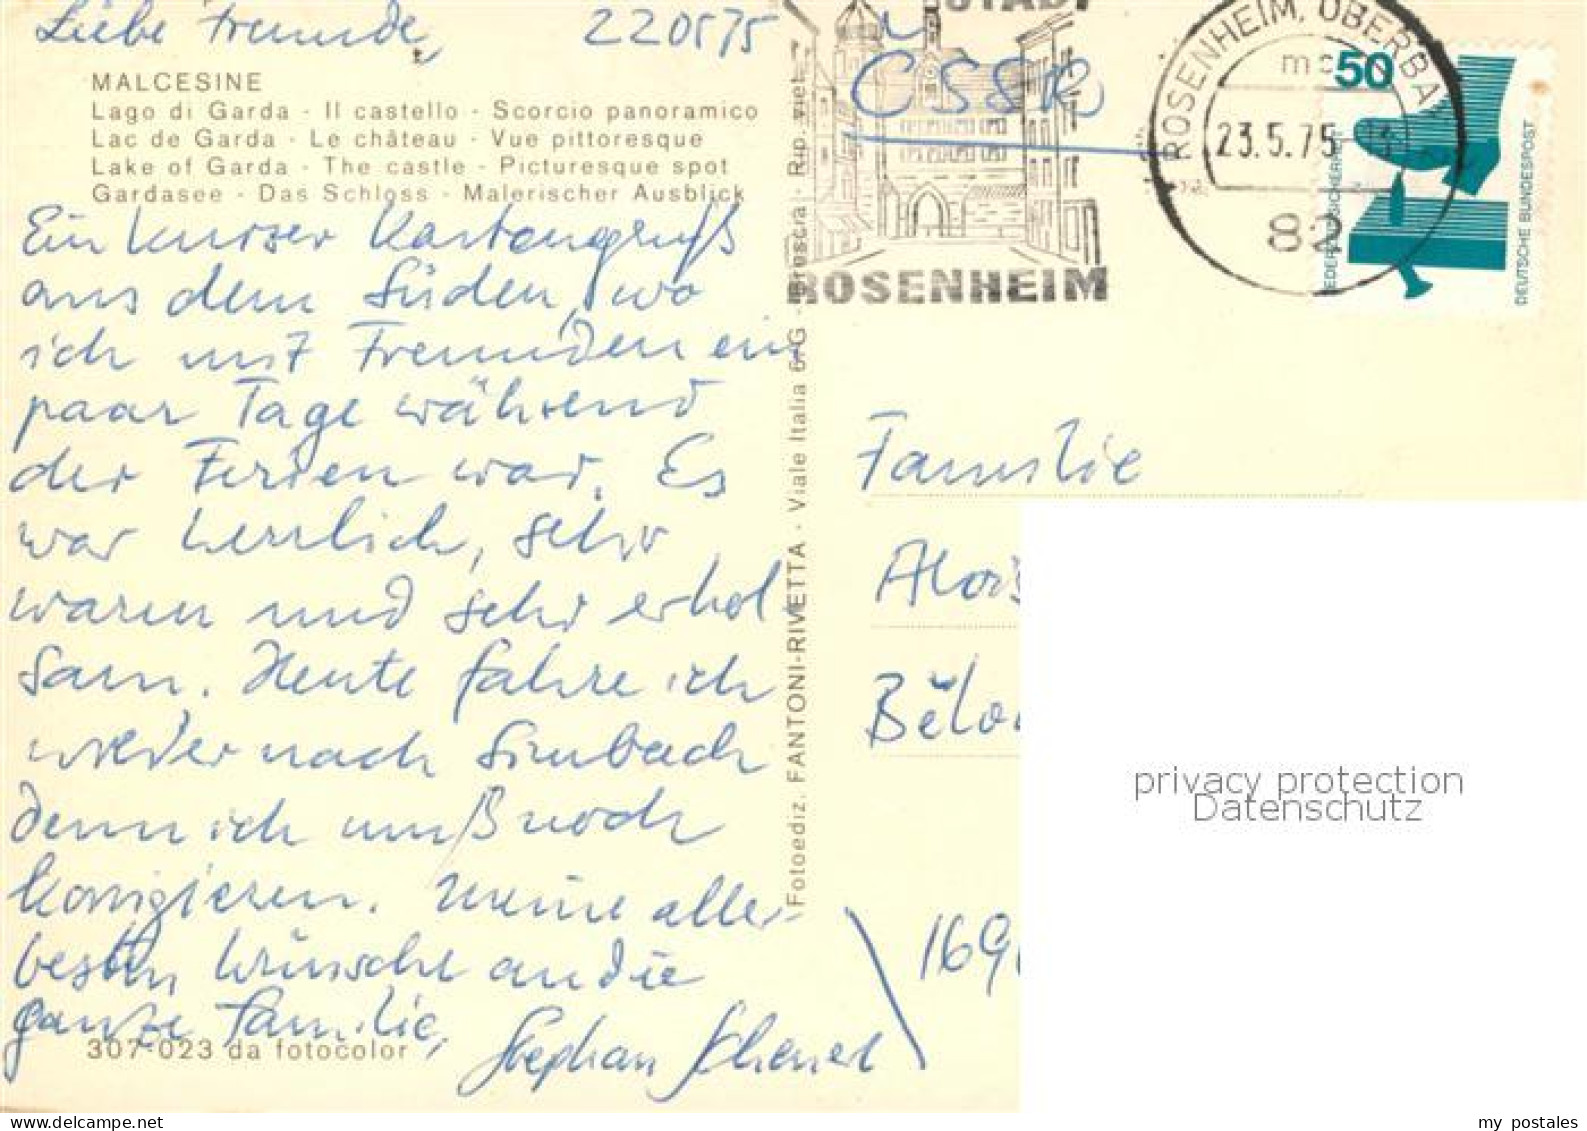 Liebe Freunde, 220575
MALCESINE
Lago di Garda - Il castello - Scorcio panoramico
Lac de Garda - Le château - Vue pittoresque
Lake of Garda - The castle - Picturesque spot
Gardasee - Das Schloss - Malerischer Ausblick
Ein kurzer Kartengruß
aus dem Süden, wo
ich mit Freunden ein
paar Tage während
der Ferien war. Es
war herrlich, sehr
warm und sehr erhol-
sam. Heute fahre ich
wieder nach Simbach
denn ich muß noch
korrigieren. Meine aller-
besten Wünsche an die
ganze Familie,
Stephan
307-023 da fotocolor
Fotoediz. FANTONI-RIVETTA - Viale Italia 6/G - Brescia - Rip. viet.
STADT
ROSENHEIM
ČSSR
ROSENHEIM, OBERBAY
mc
23.5.75
82
50
DEUTSCHE BUNDESPOST
Familie
Alois
Bělo
169
privacy protection
Datenschutz
my postales